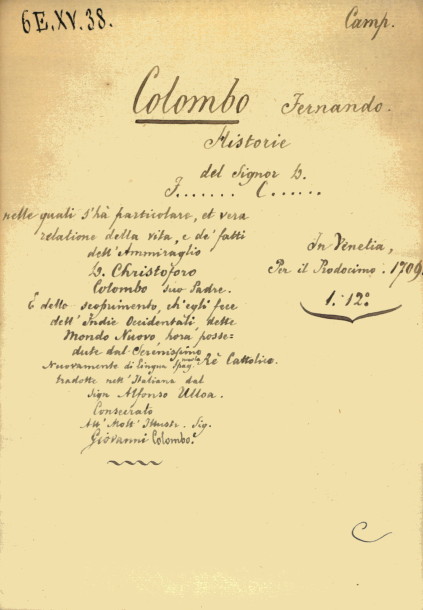 6 E. XV. 38.
Camp.
Colombo Fernando.
Historie
del Signor D.
F....... C......
nelle quali s'hà particolare, et vera
relatione della vita, e de' fatti
dell'Ammiraglio
D. Christoforo
Colombo suo Padre.
E dello scoprimento, ch'egli fece
dell'Indie Occidentali, dette
Mondo Nuovo, hora posse=
dute dal Serenissimo
Rè Cattolico.
Nuovamente di lingua Spagnuola
tradotte nell'Italiana dal
Sign Alfonso Ulloa.
Consecrato
All' Molt' Illustr. Sig.
Giovanni Colombo.
In Venetia,
Per il Prodocimo. 1709.
1. 12º
C